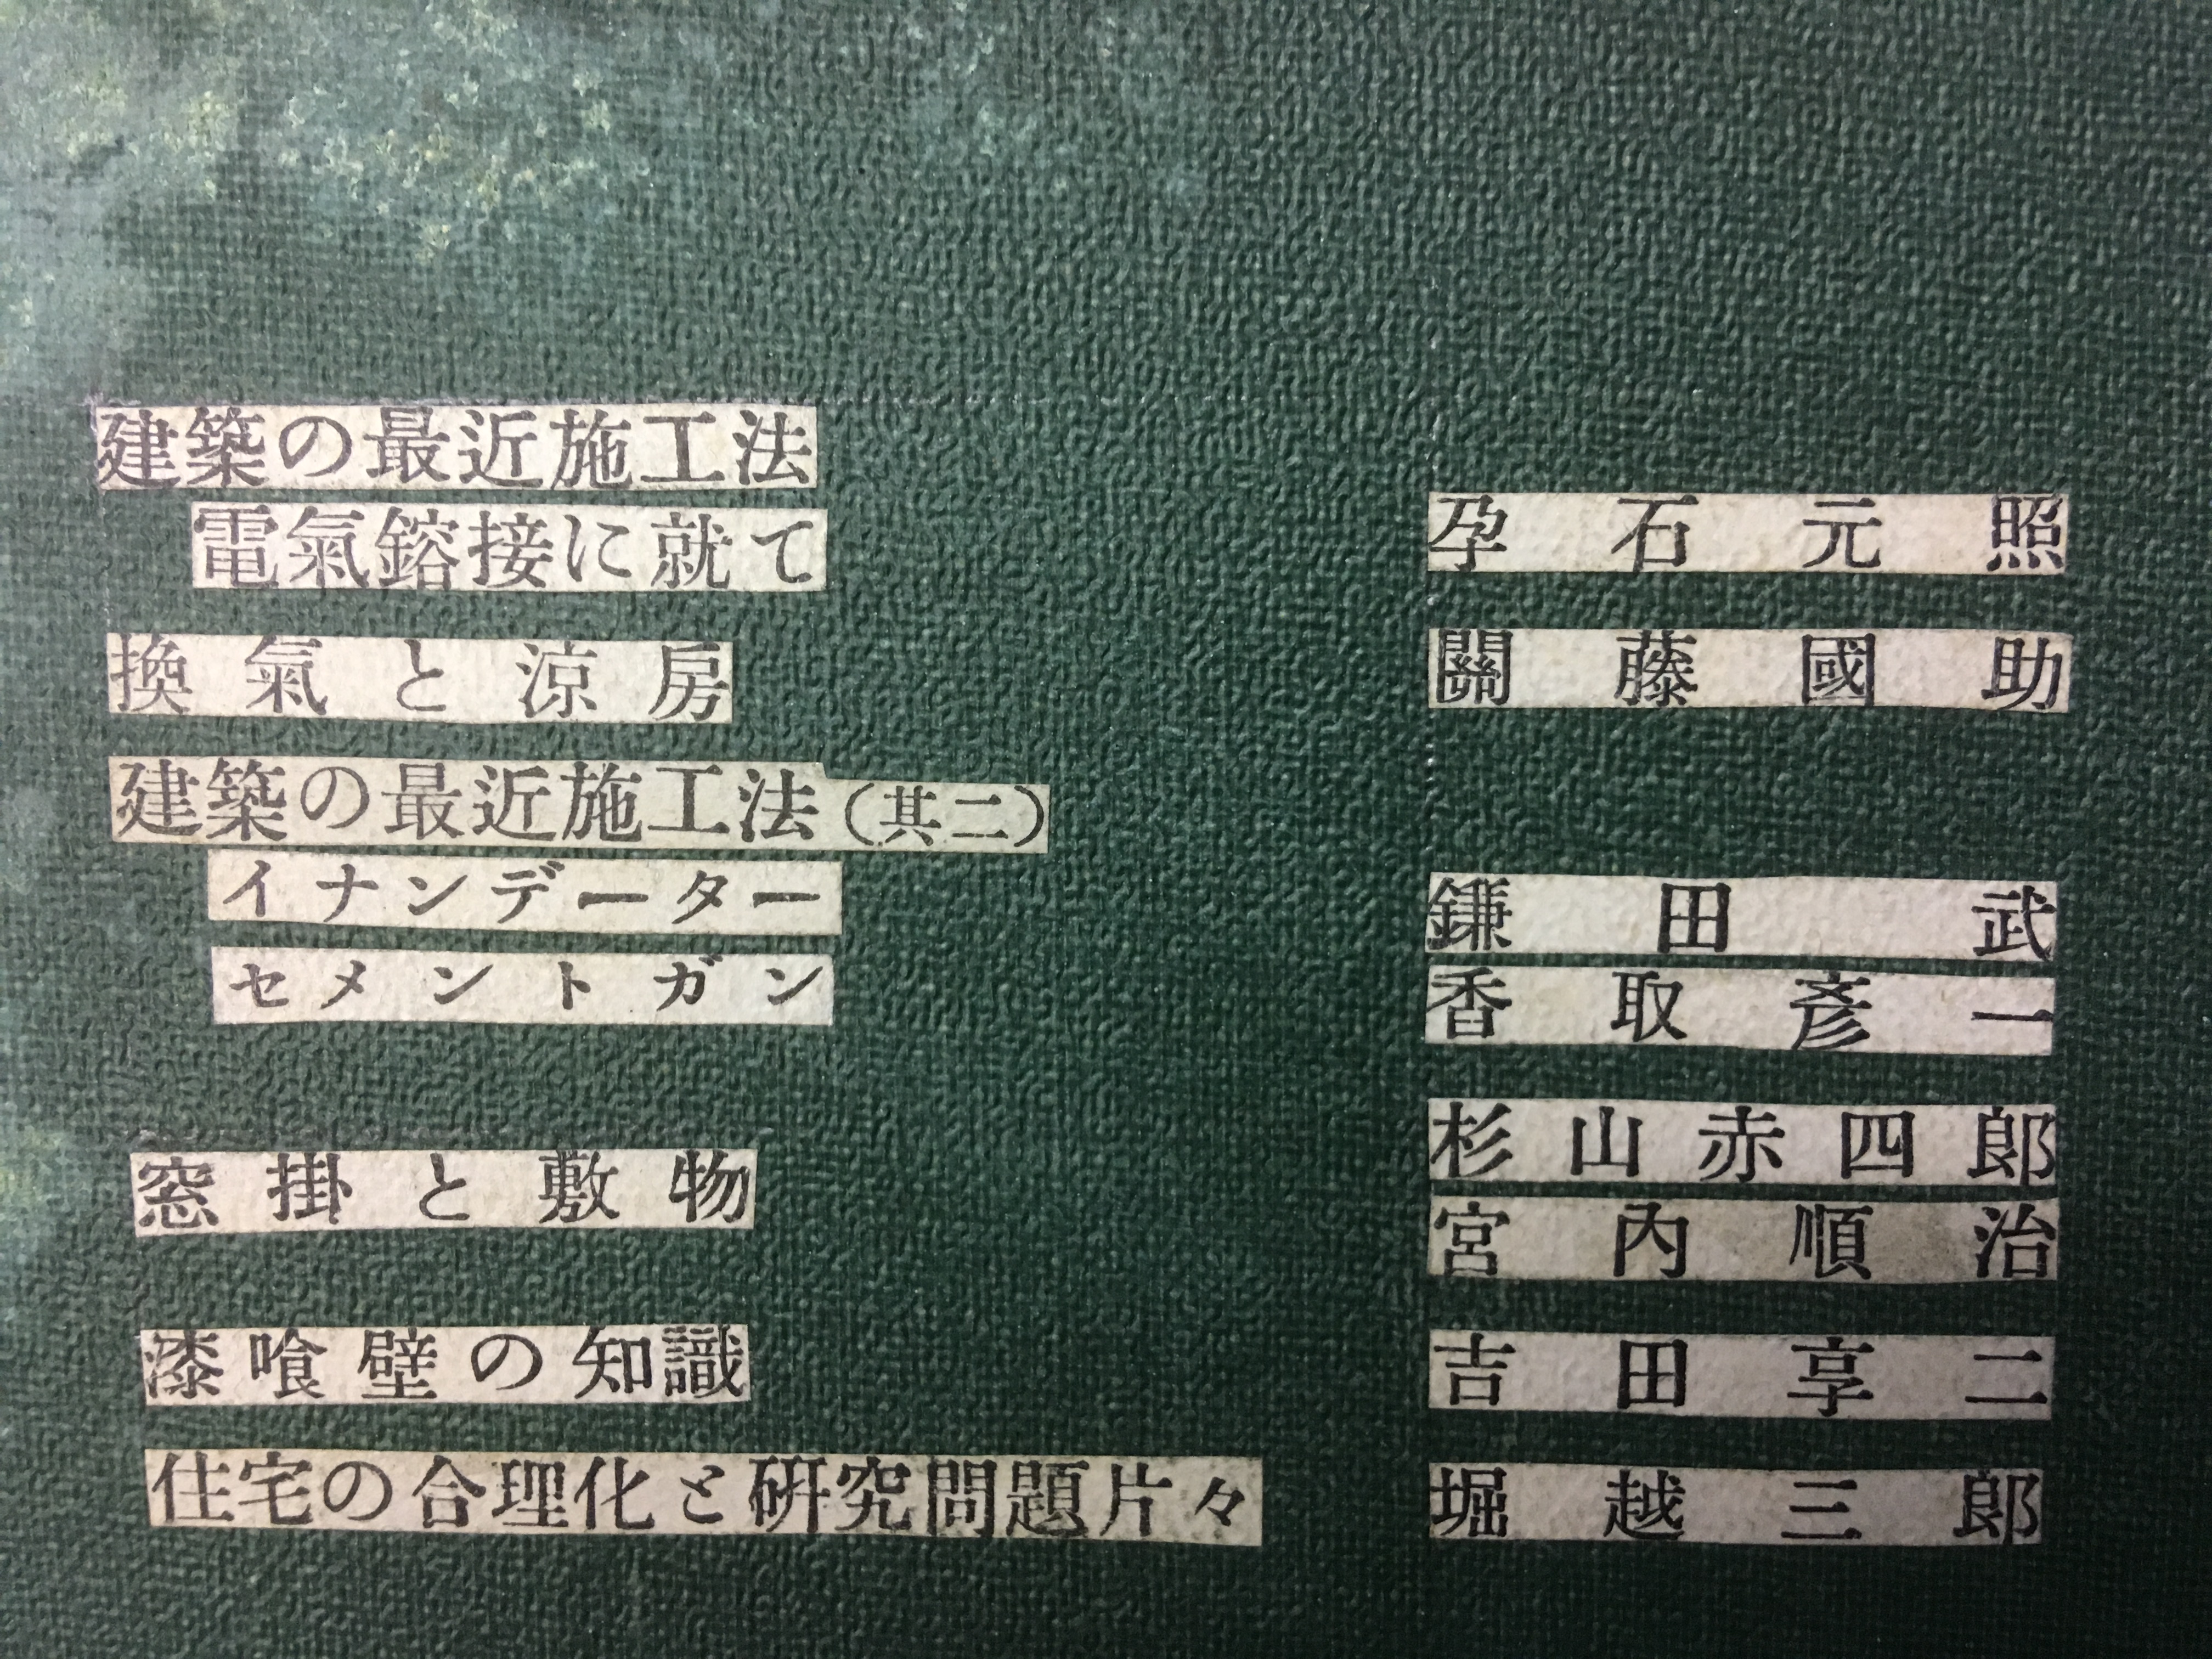 建築の最近施工法
電氣鎔接に就て
孕石元照
換氣と涼房
關藤國助
建築の最近施工法(其二)
イナンデーター
鎌田武
セメントガン
香取彥一
窓掛と敷物
杉山赤四郎
宮內順治
漆喰壁の知識
吉田享二
住宅の合理化と硏究問題片々
堀越三郎